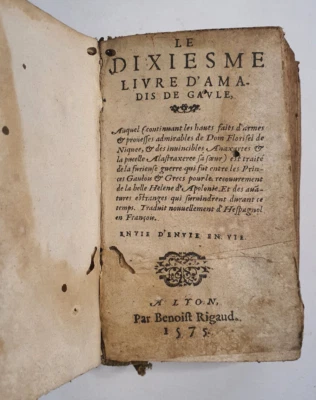 LE
DIXIESME
LIVRE D'AMA-
DIS DE GAVLE,
Auquel (continuant les hauts faits d'armes
& proüesses admirables de Dom Florisel de
Niquee, & des inuincibles Anaxartes &
la pucelle Alastraxeree sa sœur) est traité
de la furieuse guerre qui fut entre les Prin-
ces Gaulois & Grecs pour le recouurement
de la belle Helene d'Apolonie. Et des auã-
tures estranges qui suruindrent durant ce
temps. Traduit nouuellement d'Hespagnol
en François.
ENVIE D'ENVIE EN VIE
A LYON,
Par Benoist Rigaud.
1575.